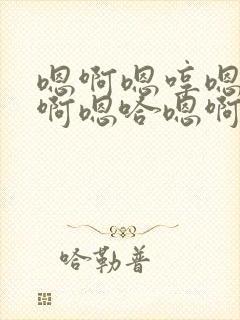 嗯啊嗯哼嗯
啊嗯哈嗯啊
哈勒普